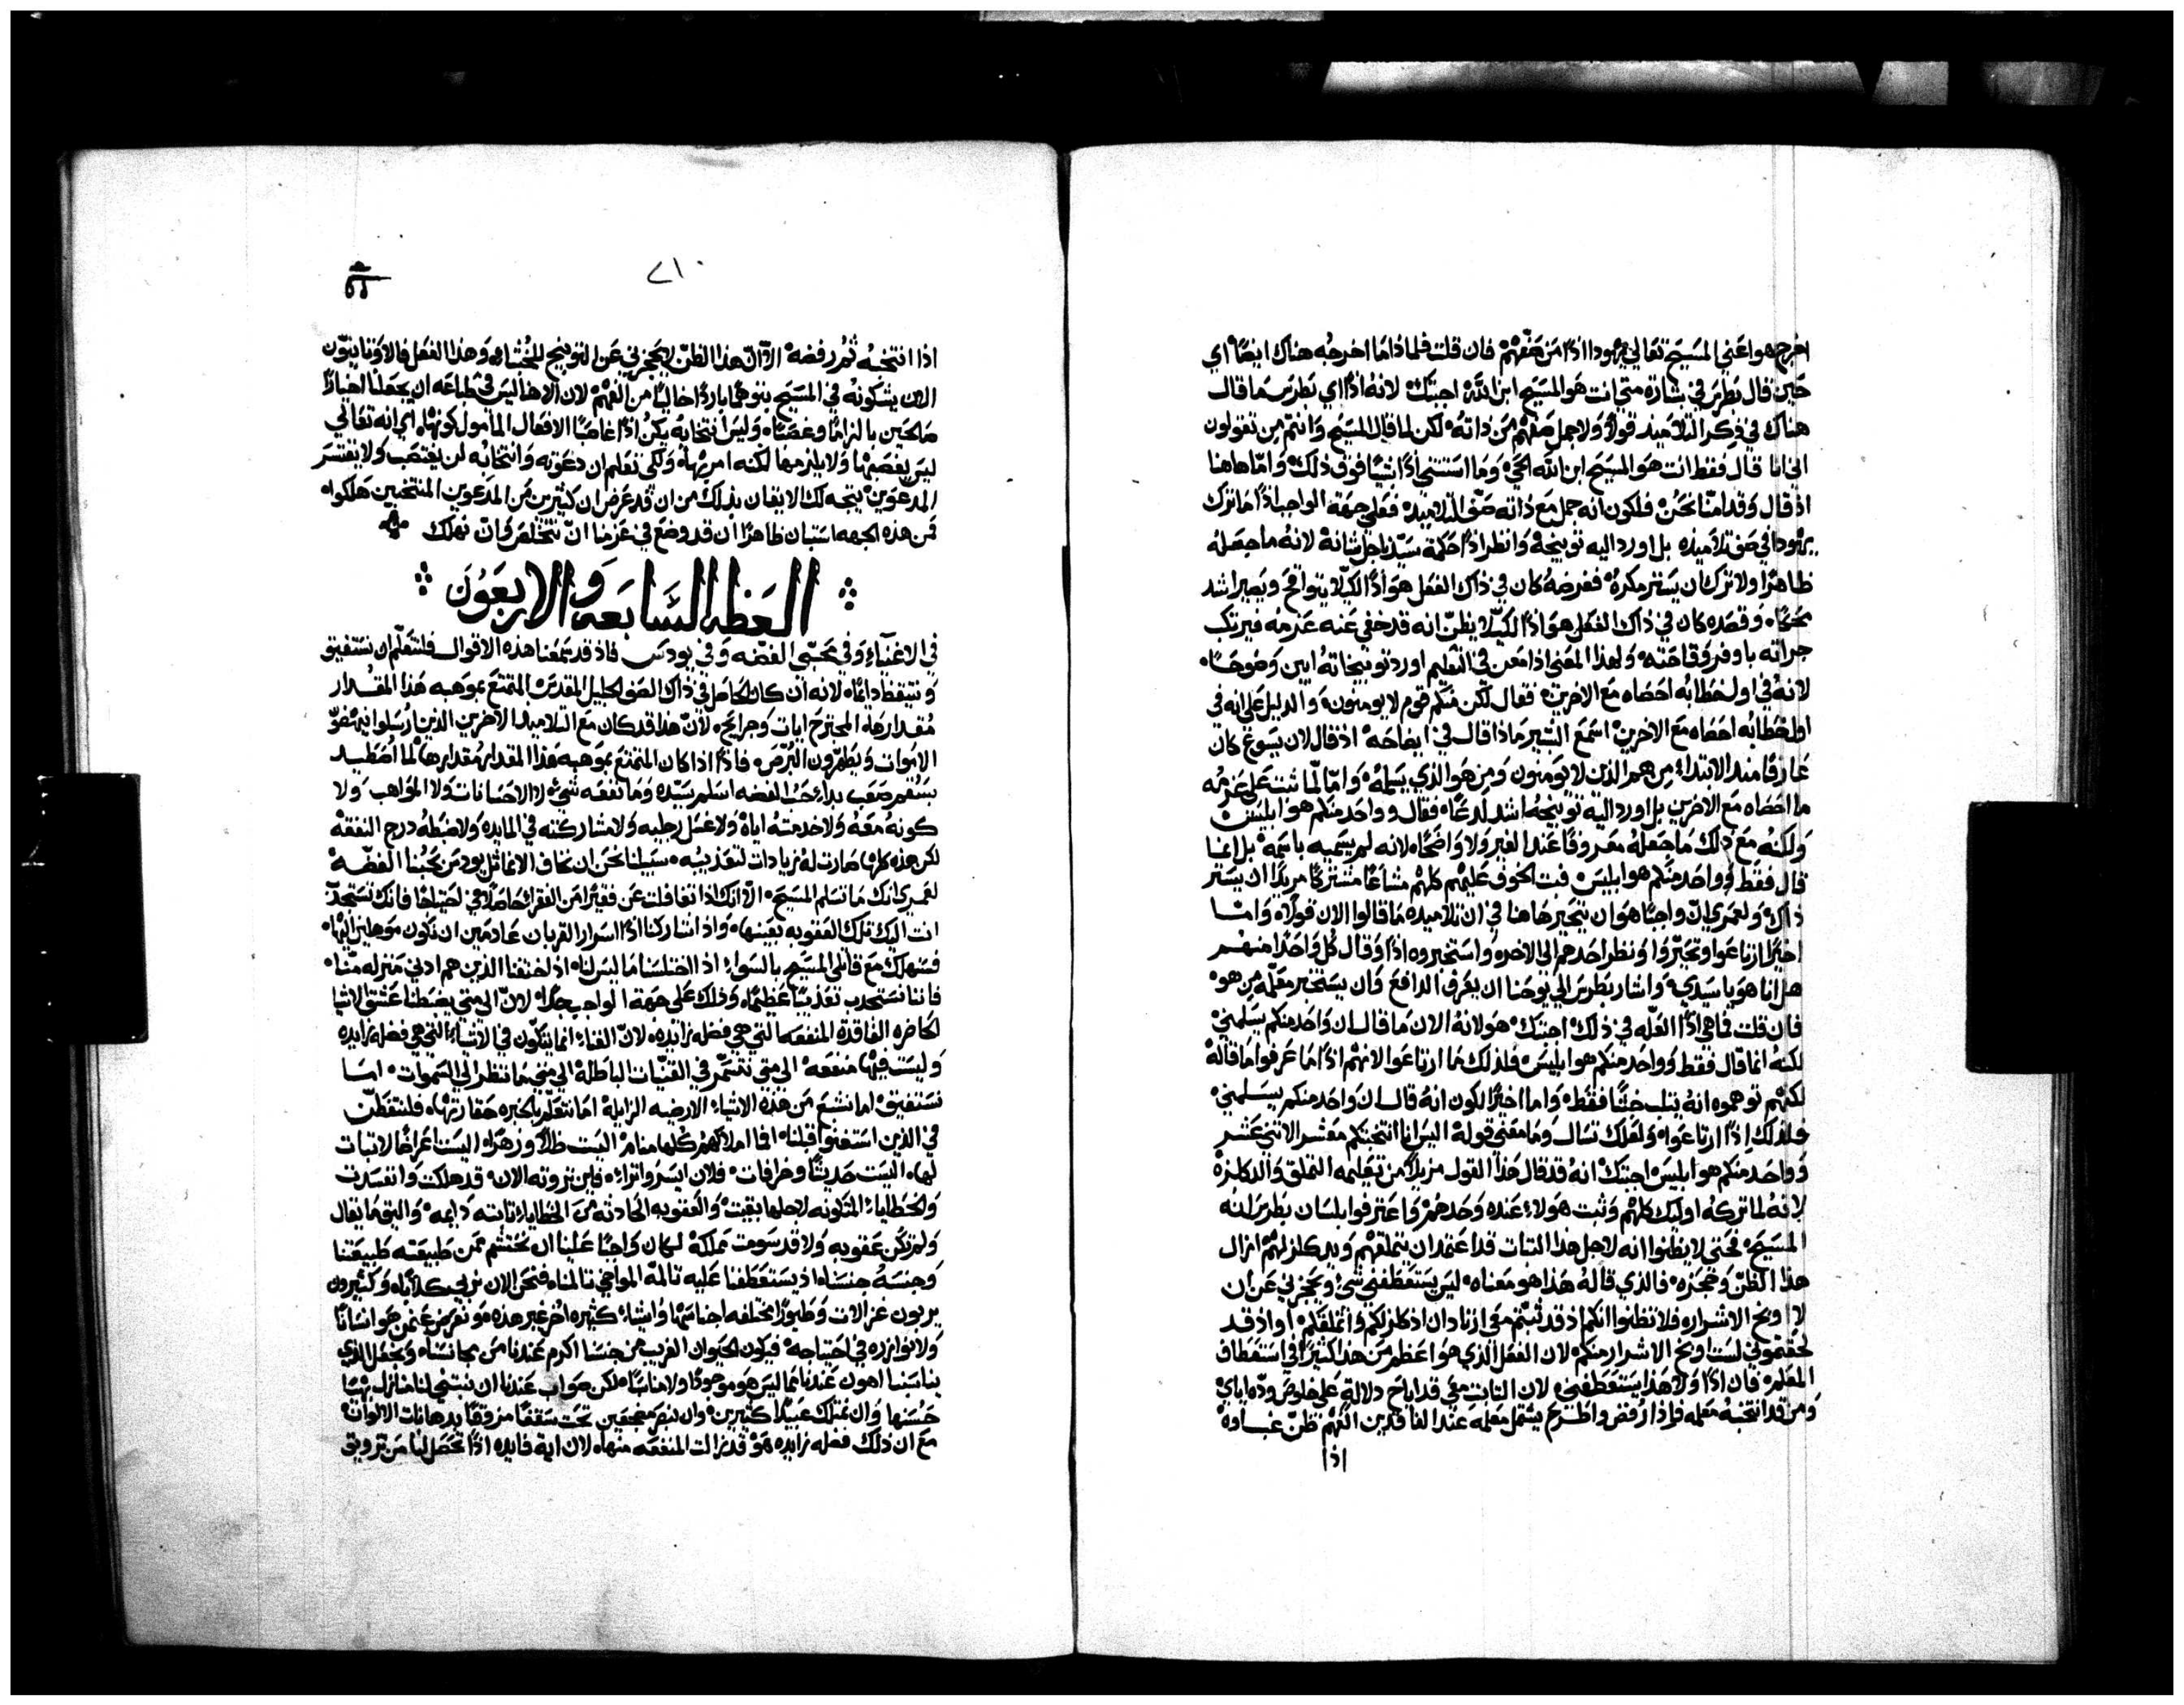 اخرج هو اعني المسيح تعالي يهودا اذًا من صفهم فان قلت فلماذا ما اخرجه هناك ايضًا اي
حين قال بطرس في بشارة متي انت هو المسيح ابن الله اجبتك لانه اذًا اي بطرس ما قال
هناك في ذكر التلاميذ قولًا ولا جمل صفهم مع ذاته لكن لما قال المسيح وانتم من تقولون
اني انا قال فقط انت هو المسيح ابن الله الحي وما استثنى اذًا شيًا فوق ذلك واما هاهنا
اذ قال وقد امنا نحن فلكون انه جمل مع ذاته صف التلاميذ فعلي جهة الواجب اذًا ما ترك
يهودا في صف تلاميذه بل اورد اليه توبيخه وانظر اذًا حكمة سيدنا جل شانه لانه ما جعله
ظاهرًا ولا ترك ان يستر مكره فغرضه كان في ذاك الفعل هو اذًا لكيلا يتواقح ويصير اشد
محكًا وقصده كان في ذاك الفعل هو اذًا لكيلا يظن انه قد خفي عنه عزمه فيرتكب
جراته باوفر وقاحته ولهذا المعني اذا معن في التعليم اورد توبيخاته ابين وضوحًا
لانه في اول خطابه احصاه مع الاخرين فقال لكن منكم قوم لا يومنون والدليل علي انه في
اول خطابه احصاه مع الاخرين اسمع البشير ماذا قال في ايضاحه اذ قال لان يسوع كان
عارفًا منذ الابتداء من هم الذين لا يومنون ومن هو الذي يسلمه واما لما ثبت علي عزمه
ما احصاه مع الاخرين بل اورد اليه توبيخه اشد لدغًا فقال وواحد منكم هو ابليس
ولكنه مع ذلك ما جعله معروفًا عند الغير ولا واضحًا لانه لم يسميه باسمه بل انما
قال فقط وواحد منكم هو ابليس فبث الخوف عليهم كلهم مشاعًا مشتركًا مريدًا ان يستر
ذاك ولعمري ان واجبًا هو ان نتحير هاهنا في ان تلاميذه ما قالوا الان قولًا واما
اخيرًا ارتاعوا وتحيروا ونظر احدهم الي الاخر واستخبروه اذًا وقال كل واحد منهم
هل انا هو يا سيدي واشار بطرس الي يوحنا ان يعرف الدافع وان يستخبر معلمه من هو
فان قلت فما هي اذًا العله في ذلك اجبتك هو لانه الان ما قال ان واحد منكم يسلمني
لكنه انما قال فقط وواحد منكم هو ابليس فلذلك ما ارتاعوا لانهم اذًا ما عرفوا ما قاله
لكنهم توهموه انه يثلب خبثًا فقط واما اخيرًا لكون انه قال ان واحد منكم يسلمني
فلذلك اذًا ارتاعوا ولعلك تسال وما معني قوله اليس انا انتخبتكم معشر الاثني عشر
وواحد منكم هو ابليس اجبتك انه قد قال هذا القول مزيلًا من تعليمه التملق والدكلزه
لانه لما تركه اوليك كلهم وثبت هولاء عنده وحدهم واعترفوا بلسان بطرس انه
المسيح فحتي لا يظنوا انه لاجل هذا الثبات قد اعتمد ان يتملقهم ويدكلز لهم ازال
هذا الظن وحجزه فالذي قاله هذا هو معناه ليس يستعطفني شي ويحجزني عن ان
لا اوبخ الاشرار فلا تظنوا انكم اذ قد ثبتم معي ارتاد ان ادكلزلكم واتملقكم او اذ قد
لحقتموني لست اوبخ الاشرار منكم لان الفعل الذي هو اعظم من هذا كثيرًا في استعطاف
المعلم فان اذًا ولا هذا يستعطفني لان الثابت معي قد اباح دلالة علي خلوص وده اياي
ومن قد انتخبه معلمه فاذا رفض واطرح يشمل معلمه عند الفاقدين الفهم ظن غباوه
اذا
٢١٠
اذا انتخبه ثم رفضه الا ان هذا الظن لا يحجزني عن التوبيخ للخبثا وهذا الفعل فالاوثانيون
الان يشكونه في المسيح بتوهم بارد خالي من الفهم لان الاهنا ليس في طباعه ان يجعلنا اخيارًا
صالحين بالزامًا وغصبًا وليس انتخابه يكن اذًا غاصبًا الافعال المامول كونها اي انه تعالي
ليس يغصبها ولا يلزمها لكنه امر بها ولكي تعلم ان دعوته وانتخابه لن يغتصب ولا يقتسر
المدعوين يتجه لك الايقان بذلك من ان قد عرض ان كثيرين من المدعوين المنتخبين هلكوا
فمن هذه الجهه استبان ظاهرًا ان قد وضع في عزمنا ان نتخلص وان نهلك
العظه السابعه والاربعون
في الاغنياء وفي محبي الفضه وفي يودس فاذ قد سمعنا هذه الاقوال فلنتعلم ان نستفيق
ونتيقظ دايمًا لانه ان كان الحاصل في ذاك الصف الجليل المقدس المتمتع بموهبه هذا المقدار
مقدارها المجترح ايات وجرايح لان هذا قد كان مع التلاميذ الاخرين الذين ارسلوا لينهضوا
الاموات ويطهرون البرص فاذًا اذا كان المتمتع بموهبه هذا المقدار مقدارها لما اضطيد
بسقم صعب بداء حب الفضه اسلم سيده وما نفعه شيء لا الاحسانات ولا المواهب ولا
كونه معه ولا خدمته اياه ولا غسل رجليه ولا مشاركته في المايده ولا ضبطه درج النفقه
لكن هذه كلها صارت له زيادات لتعذيبه سبيلنا نحن ان نخاف الا نماثل يودس بحبنا الفضه
لعمري انك ما تسلم المسيح الا انك اذا تغافلت عن فقيرًا من الفقراء حاصلًا في احتياجًا فانك تستجذ
انت اليك تلك العقوبه بعينها واذا شاركنا اذًا اسرار القربان عادمين ان نكون موهلين اليها
فسنهلك مع قاتلي المسيح بالسواء اذ اختلسنا ما ليس لنا اذ اختنقنا الذين هم ادني منزله منا
فاننا نستجذب تعذيبًا عظيمًا وذلك علي جهة الواجب جدًا لان الي متي يضبطنا عشق الاشيا
الحاضره الفاقدة المنفعه التي هي فضله زايده لان الغناء انما يتكون في الاشياء التي هي فضله زايده
وليست فيها منفعه الي متي نتسمر في القنيات الباطلة الي متي ما ننظر الي السموات اما
نستفيق اما نشبع من هذه الاشياء الارضيه الزايلة اما نتعلم بالخبره حقارتها فلنتفطن
في الذين استغنوا قبلنا افما املاكهم كلها منام البست ظلًا وزهرًا اليست اعراضًا لا ثبات
لها اليست حديثًا وخرافات فلان ايسر واثراء فاين ثروته الان قد هلكت وانفسدت
والخطاياء المتكونه لاجلها بقيت والعقوبه الحادثه من الخطاياء ثابته دايمه والبق ما يقال
ولم تكن عقوبه ولا قد سومت مملكة لكان واجبًا علينا ان نحتشم ممن طبيعته طبيعتنا
وجنسه جنسنا اذ يستعطفنا عليه تالمه المواجي تالمنا فنحن الان نربي كلابًا وكثيرون
يربون غزالات وطيورًا مختلفه اجناسها واشياء كثيره اخر غير هذه ونعرض عن من هو انسانًا
ولا نوازره في احتياجه فيكون الحيوان الغريب من جنسنا اكرم عندنا من مجانسنا ونجعل الذي
يناسبنا اهون عندنا مما ليس هو موجودًا ولا مناسبًا لكن صواب عندنا ان نبتني لنا منازل بهيًا
حسنها وان نمتلك عبيدًا كثيرين وان نبصر مضجعين تحت سقفًا مزوقًا بدهانات الالوان
مع ان ذلك فضله زايده هو قد زالت المنفعه منها لان اية فايده اذًا تحصل لنا من تزويق